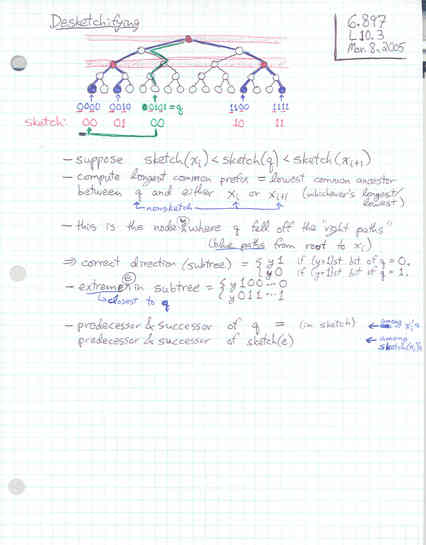 Desketchifying
6.897
L10.3
Mar. 8, 2005
0000 0010 0101=q 1100 1111
sketch: 00 01 00 10 11
- suppose sketch(xi) < sketch(q) < sketch(xi+1)
- compute longest common prefix = lowest common ancestor
between q and either xi or xi+1 (whichever's longest/
lowest)
nonsketch
- this is the node y where q fell off the "right paths"
(blue paths from root to xi)
⇒ correct direction (subtree) = { y1 if (|y|+1)st bit of q = 0.
y0 if (|y|+1)st bit of q = 1.
- extreme e in subtree = { y100⋯0
y011⋯1
closest to q
- predecessor & successor of q = (in sketch) ← among xi's
predecessor & successor of sketch(e) ← among
sketch(xi)'s